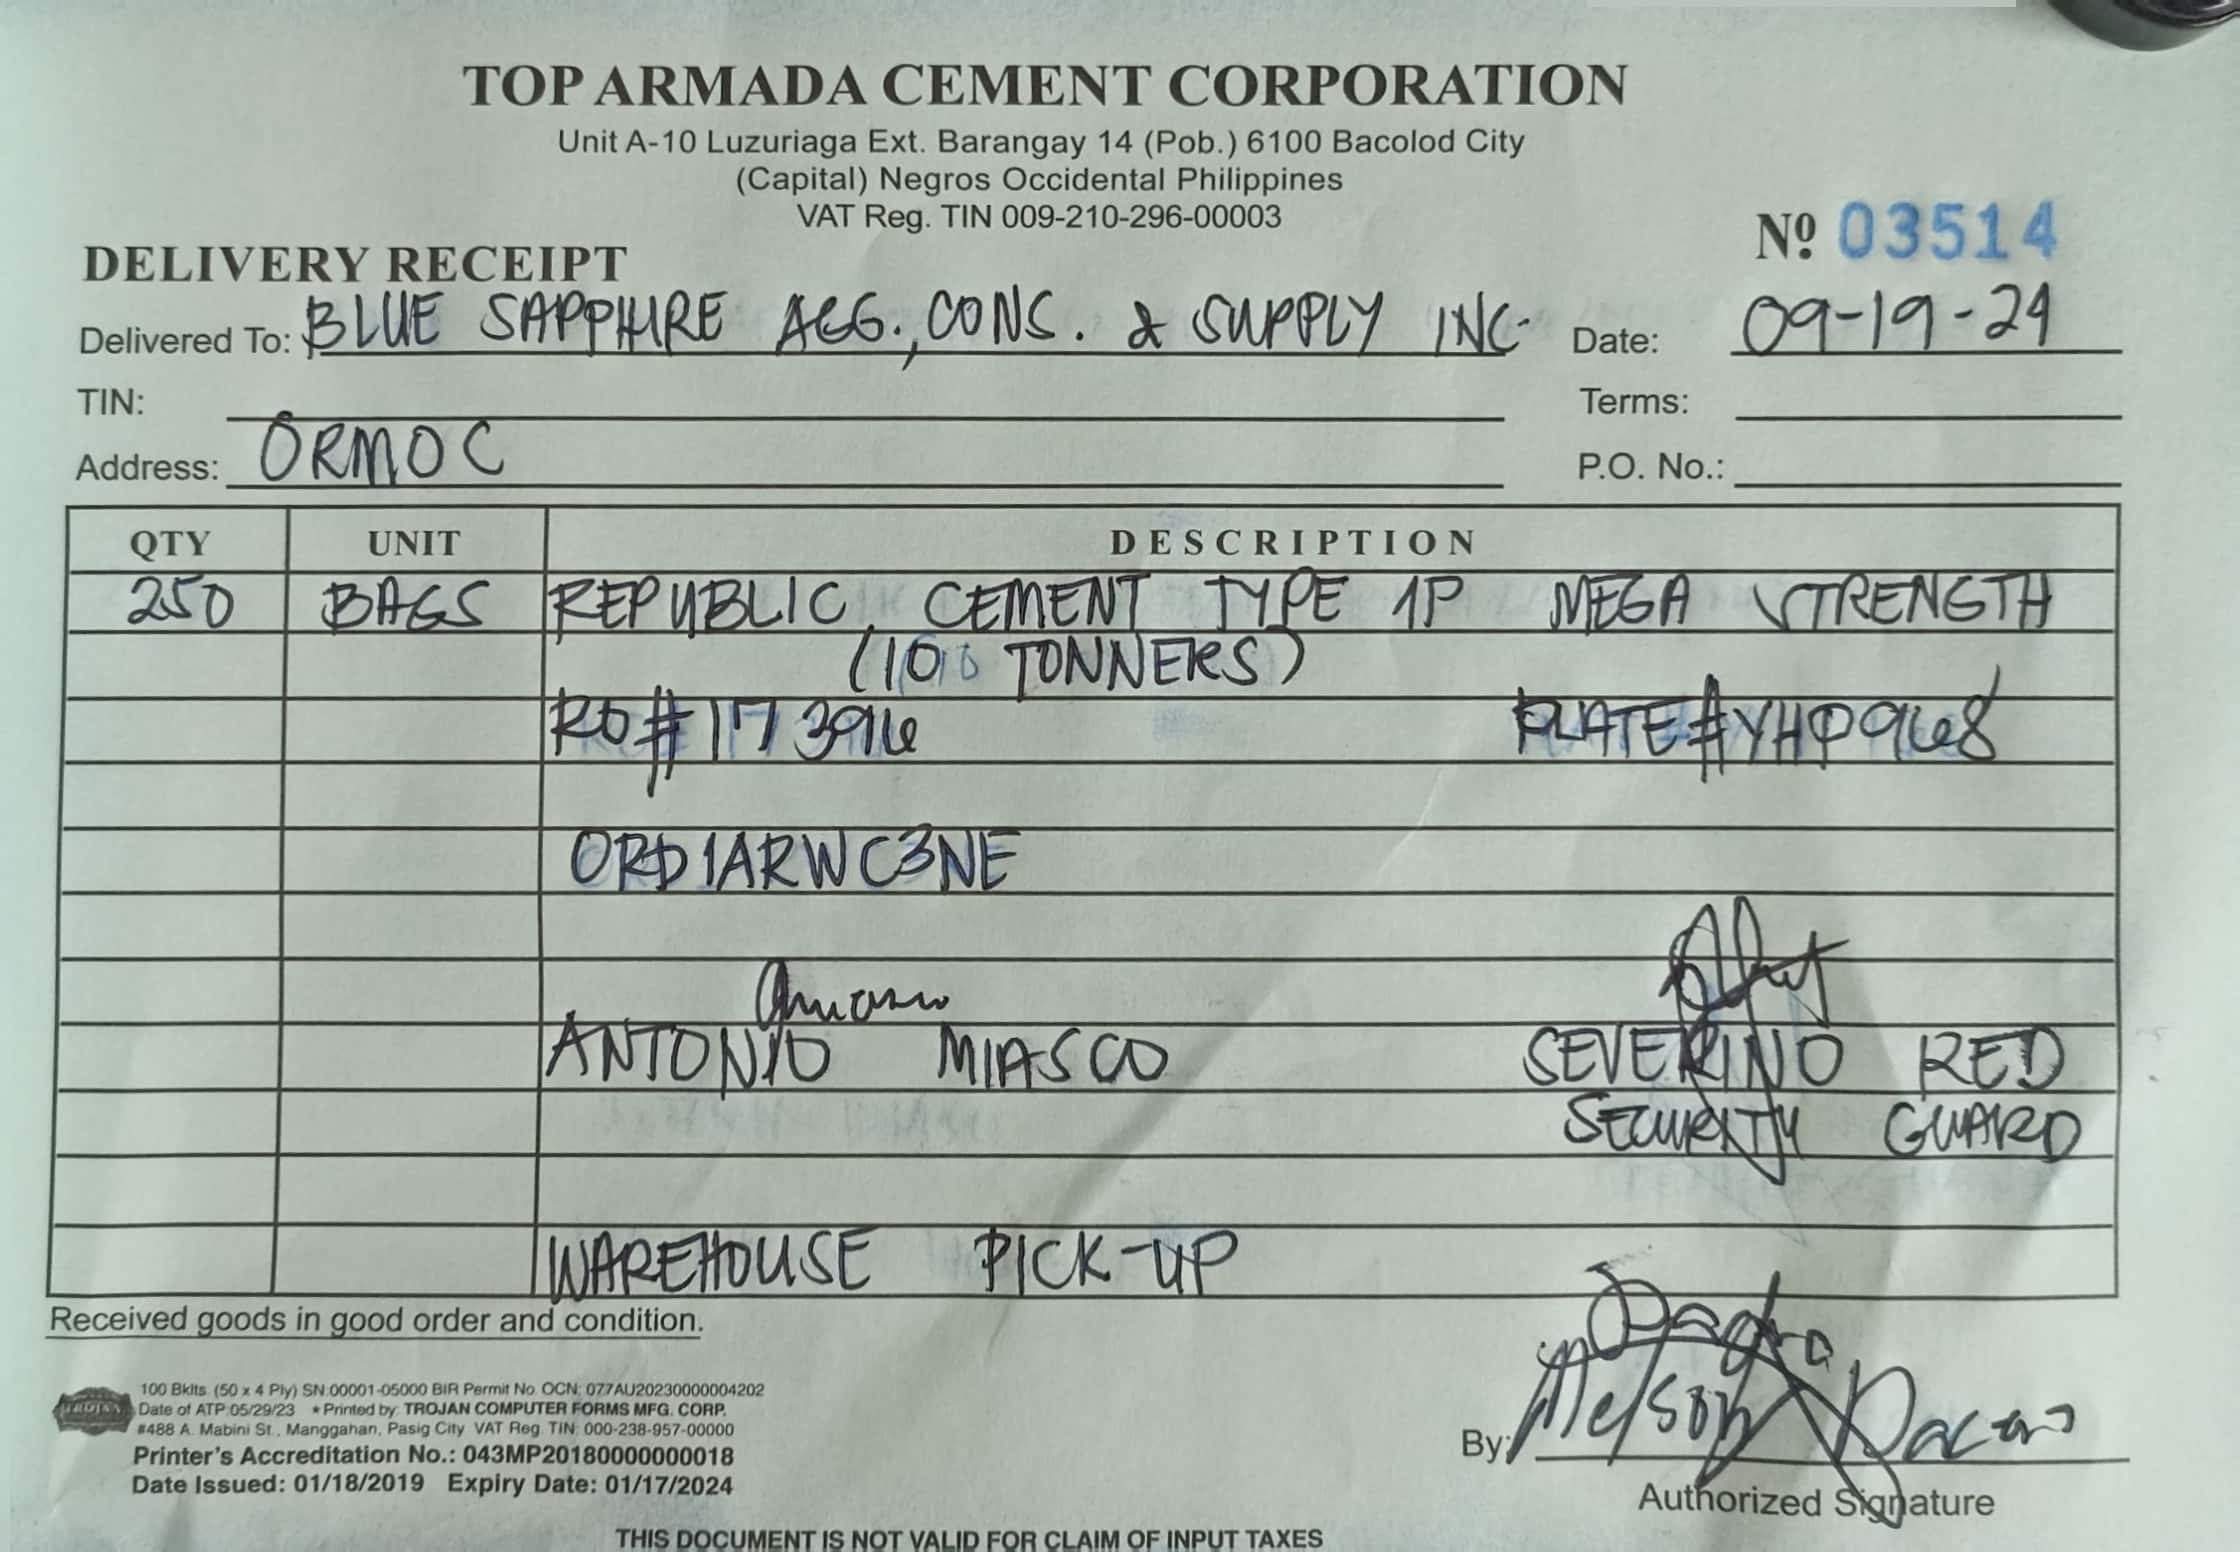 TOP ARMADA CEMENT CORPORATION
Unit A-10 Luzuriaga Ext. Barangay 14 (Pob.) 6100 Bacolod City
(Capital) Negros Occidental Philippines
VAT Reg. TIN 009-210-296-00003
Nº 03514
DELIVERY RECEIPT
Delivered To: BLUE SAPPHIRE AGG., CONS. & SUPPLY INC. Date: 09-19-24
TIN: Terms:
Address: ORMOC P.O. No.:
QTY UNIT DESCRIPTION
250 BAGS REPUBLIC CEMENT TYPE 1P MEGA STRENGTH
(10 TONNERS)
RO#17396 PLATE#YHP968
ORD1ARWC3NE
ANTONIO MIASCO SEVERINO RED
SECURITY GUARD
WAREHOUSE PICK-UP
Received goods in good order and condition.
100 Bklts. (50 x 4 Ply) SN:00001-05000 BIR Permit No. OCN: 077AU20230000004202
Date of ATP:05/29/23 * Printed by: TROJAN COMPUTER FORMS MFG. CORP.
#488 A. Mabini St., Manggahan, Pasig City VAT Reg. TIN: 000-238-957-00000
Printer's Accreditation No.: 043MP20180000000018
Date Issued: 01/18/2019 Expiry Date: 01/17/2024
By: Melson
Authorized Signature
THIS DOCUMENT IS NOT VALID FOR CLAIM OF INPUT TAXES